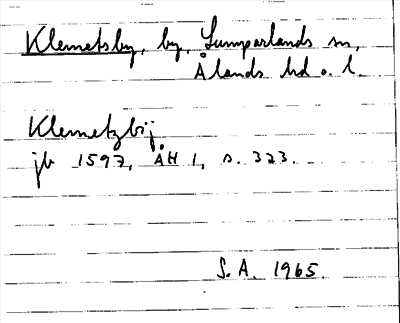 Klemetsby, by, Lumparlands sn,
Ålands hd o. l.
Klemetzbij
jb 1597, ÅH 1, s. 323.
S.A. 1965.